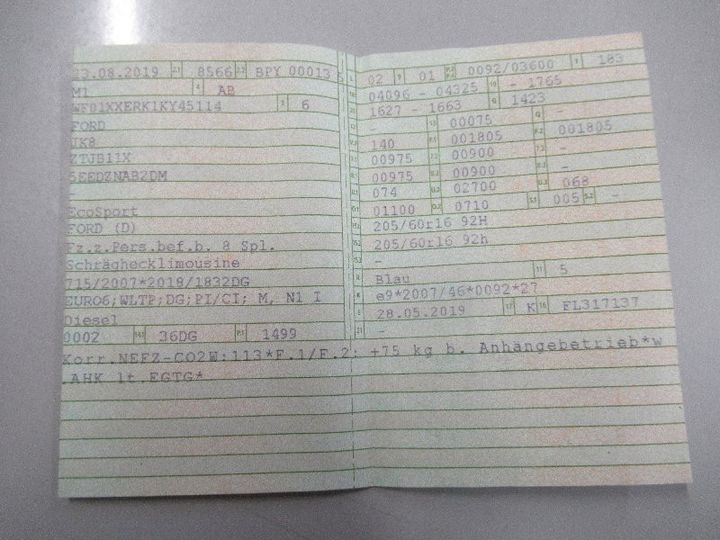 23.08.2019 8566 BPY 00013 5
M1 AB
WF01XXERK1KY45114 6
FORD
JK8
ZTJB11X
5EEDZNAB2DM
EcoSport
FORD (D)
Fz.z.Pers.bef.b. 8 Spl.
Schräghecklimousine
715/2007*2018/1832DG
EURO6;WLTP;DG;PI/CI; M, N1 I
Diesel
0002 36DG 1499
02 01 0092/03600 183
04096 - 04325 - 1765
1627 - 1663 1423
- 00075 -
140 001805 001805
00975 00900 -
00975 00900 -
074 02700 068
01100 0710 005 -
205/60r16 92H
205/60r16 92h
-
Blau 5
e9*2007/46*0092*27
28.05.2019 K FL317137
-
Korr.NEFZ-CO2W:113*F.1/F.2: +75 kg b. Anhängebetrieb*w
.AHK lt.EGTG*